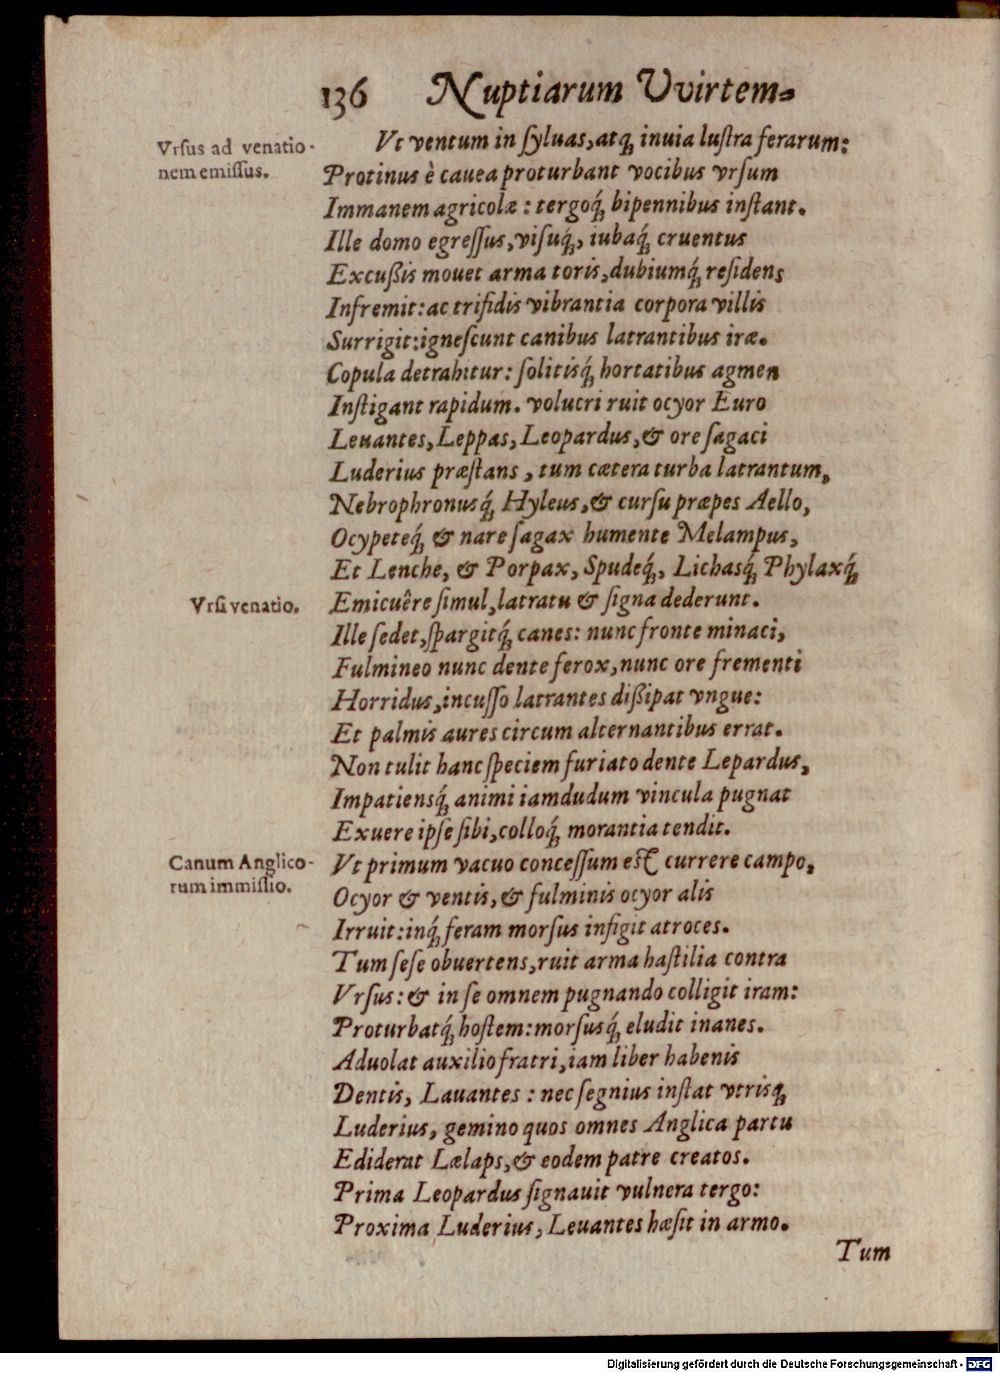 136 Nuptiarum Vvirtem-
Vrsus ad venatio-
nem emissus.
Vt ventum in syluas, atq́; inuia lustra ferarum:
Protinus è cauea proturbant vocibus vrsum
Immanem agricolæ: tergoq́; bipennibus instant.
Ille domo egressus, visuq́;, iubaq́; cruentus
Excußis mouet arma toris, dubiumq́; residens
Infremit: ac trifidis vibrantia corpora villis
Surrigit: ignescunt canibus latrantibus iræ.
Copula detrahitur: solitisq́; hortatibus agmen
Instigant rapidum. volucri ruit ocyor Euro
Leuantes, Leppas, Leopardus, & ore sagaci
Luderius præstans, tum cætera turba latrantum,
Nebrophronusq́; Hyleus, & cursu præpes Aello,
Ocypeteq́; & nare sagax humente Melampus,
Et Lenche, & Porpax, Spudeq́;, Lichasq́; Phylaxq́;
Vrsi venatio.
Emicuêre simul, latratu & signa dederunt.
Ille sedet, spargitq́; canes: nunc fronte minaci,
Fulmineo nunc dente ferox, nunc ore frementi
Horridus, incusso latrantes dißipat vngue:
Et palmis aures circum alternantibus errat.
Non tulit hanc speciem furiato dente Lepardus,
Impatiensq́; animi iamdudum vincula pugnat
Exuere ipse sibi, colloq́; morantia tendit.
Canum Anglico-
rum immissio.
Vt primum vacuo concessum est currere campo,
Ocyor & ventis, & fulminis ocyor alis
Irruit: inq́; feram morsus infigit atroces.
Tum sese obuertens, ruit arma hastilia contra
Vrsus: & in se omnem pugnando colligit iram:
Proturbatq́; hostem: morsusq́; eludit inanes.
Aduolat auxilio fratri, iam liber habenis
Dentis, Lauantes: nec segnius instat vtrisq;
Luderius, gemino quos omnes Anglica partu
Ediderat Lælaps, & eodem patre creatos.
Prima Leopardus signauit vulnera tergo:
Proxima Luderius, Leuantes hæsit in armo.
Tum
Digitalisierung gefördert durch die Deutsche Forschungsgemeinschaft - DFG